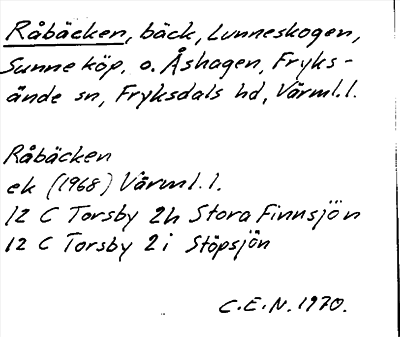 Råbäcken, bäck, Lunneskogen,
Sunne köp. o. Åshagen, Fryks-
ände sn, Fryksdals hd, Värml. l.
Råbäcken
ek (1968) Värml. l.
12 C Torsby 2h Stora Finnsjön
12 C Torsby 2i Stöpsjön
C.E.N. 1970.